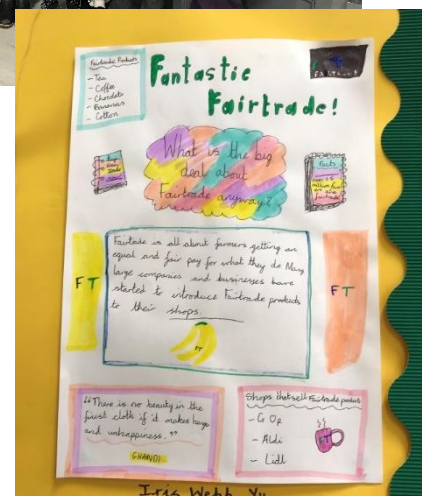 Fairtrade Products
- Tea
- Coffee
- Chocolate
- Bananas
- Cotton
Fantastic
Fairtrade!
What is the big
deal about
Fairtrade anyway?
Facts
Fairtrade is all about farmers getting an
equal and fair pay for what they do. Many
large companies and businesses have
started to introduce Fairtrade products
to their shops.
FT
FT
FT
"There is no beauty in the
finest cloth if it makes hunger
and unhappiness."
GHANDI
Shops that sell Fairtrade products
- Co Op
- Aldi
- Lidl
FT
Iris Webb